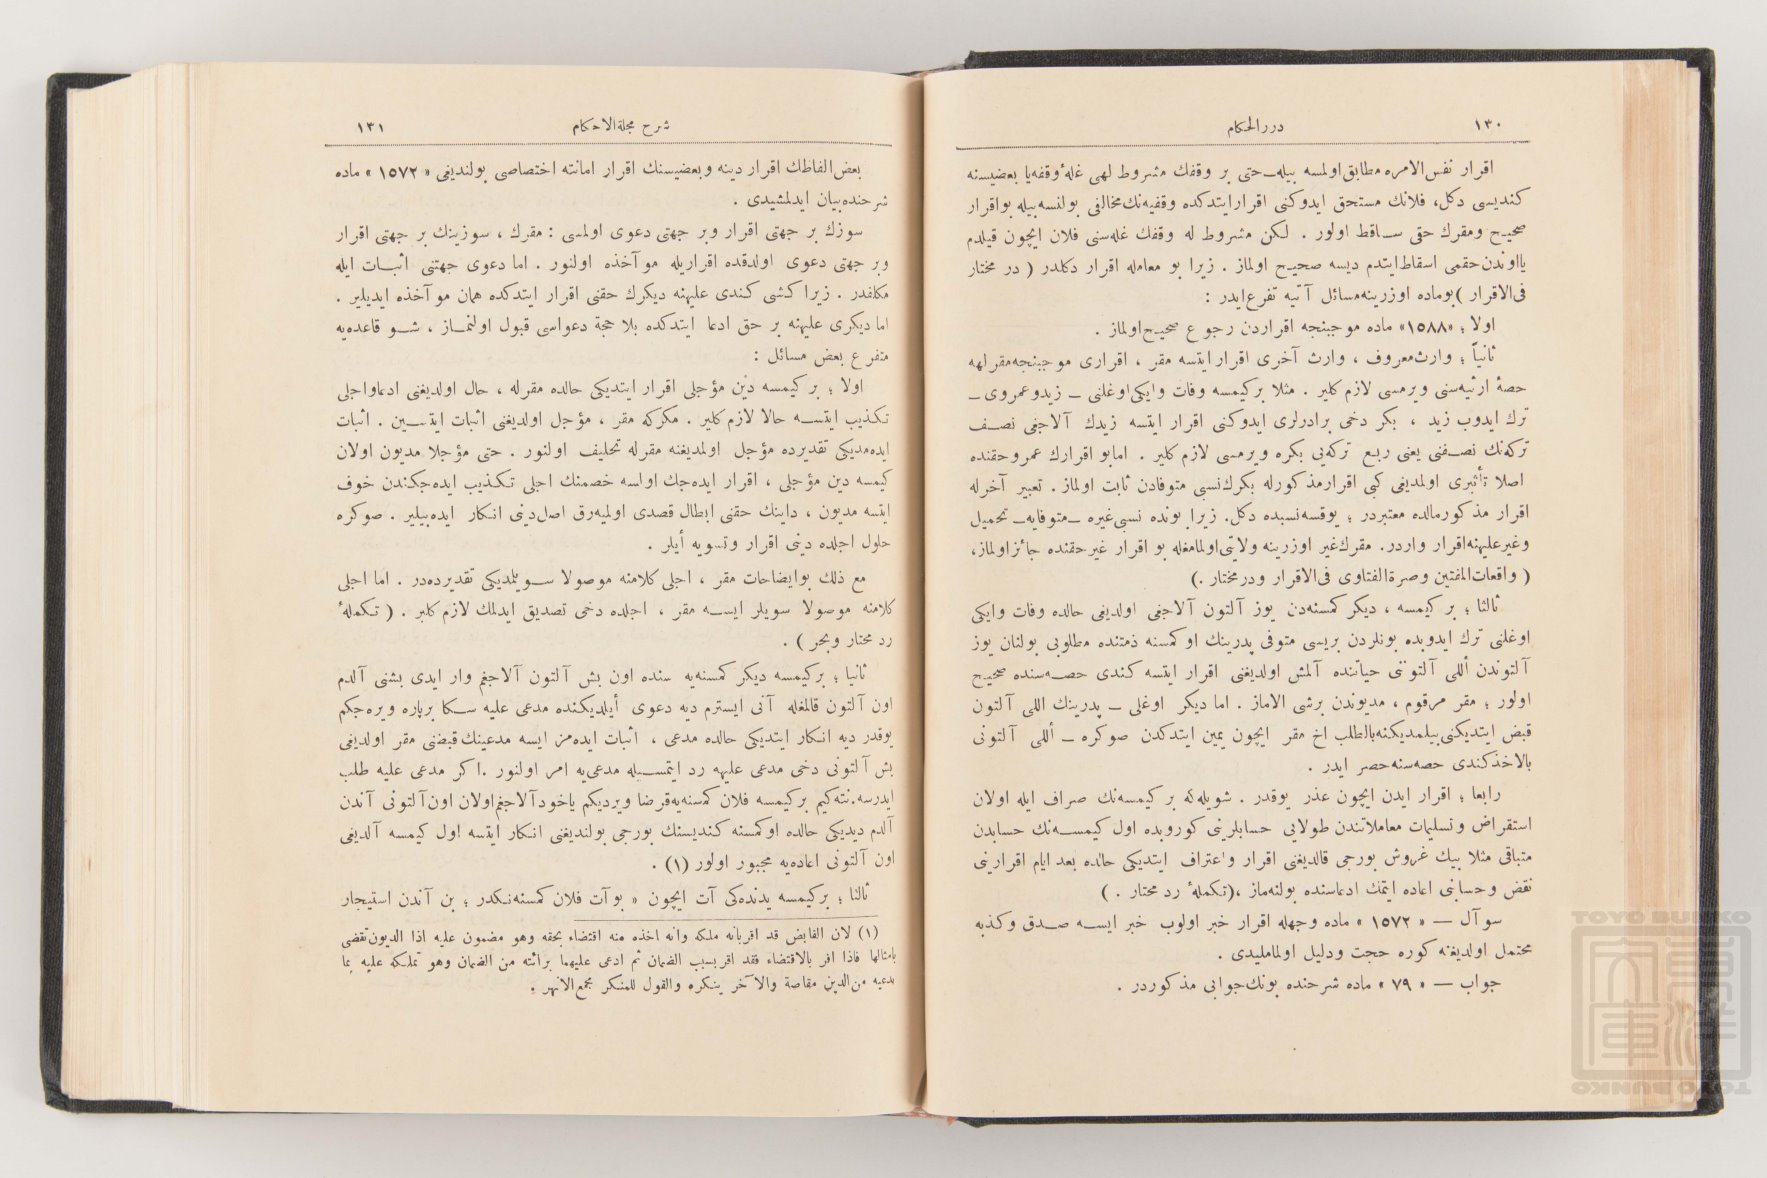 ١٣٠
دررالحكام
اقرار نفس‌الامره مطابق اولمسه بيله ـ حتى بر وقفك مشروط لهى غلهٔ وقفه يا بعضيسنه
كنديسى دكل، فلانك مستحق ايدوكنى اقرار ايتدكده وقفيه‌نك مخالفى بولنسه بيله بو اقرار
صحيح ومقرك حقى ساقط اولور . لكن مشروط له وقفك غله‌سنى فلان ايچون قيلدم
يا اوندن حقمى اسقاط ايتدم ديسه صحيح اولماز . زيرا بو معامله اقرار دكلدر ( در مختار
فى‌الاقرار ) بوماده اوزرينه مسائل آتيه تفرع ايدر :
اولا ؛ «١٥٨٨» ماده موجبنجه اقراردن رجوع صحيح اولماز .
ثانياً ؛ وارث معروف ، وارث آخرى اقرار ايتسه مقر ، اقرارى موجبنجه مقرلهه
حصهٔ ارثيه‌سنى ويرمسى لازم كلير . مثلا بر كيمسه وفات وايكى اوغلنى ـ زيد وعمروى ـ
ترك ايدوب زيد ، بكر دخى برادرلرى ايدوكنى اقرار ايتسه زيدك آلاجغى نصف
تركه‌نك نصفنى يعنى ربع تركه‌يى بكره ويرمسى لازم كلير . اما بو اقرارك عمرو حقنده
اصلا تأثيرى اولمديغى كبى اقرار مذكورله بكرك نسبى متوفادن ثابت اولماز . تعبير آخرله
اقرار مذكور مالده معتبردر ؛ يوقسه نسبده دكل. زيرا بونده نسبى غيره ـ متوفايه ـ تحميل
وغير عليهنه اقرار واردر. مقرك غير اوزرينه ولايتى اولمامغله بو اقرار غير حقنده جائز اولماز،
( واقعات‌المفتين وصرةالفتاوى فى‌الاقرار ودر مختار .)
ثالثا ؛ بر كيمسه ، ديكر كمسنه‌دن يوز آلتون آلاجغى اولديغى حالده وفات وايكى
اوغلنى ترك ايدوبده بونلردن بريسى متوفى پدرينك او كمسنه ذمتنده مطلوبى بولنان يوز
آلتوندن اللى آلتوننى حياتنده آلمش اولديغنى اقرار ايتسه كندى حصه‌سنده صحيح
اولور ؛ مقر مرقوم ، مديوندن برشى الاماز . اما ديكر اوغلى ـ پدرينك اللى آلتون
قبض ايتديكنى بيلمديكنه بالطلب اخ مقر ايچون يمين ايتدكدن صوكره ـ أللى آلتونى
بالاخذ كندى حصه‌سنه حصر ايدر .
رابعا ؛ اقرار ايدن ايچون عذر يوقدر . شويله‌كه بر كيمسه‌نك صراف ايله اولان
استقراض وتسليمات معاملاتندن طولايى حسابلرينى كوروبده اول كيمسه‌نك حسابدن
متباقى مثلا بيك غروش بورجى قالديغنى اقرار واعتراف ايتديكى حالده بعد ايام اقرارينى
نقض وحسابى اعاده ايتمك ادعاسنده بولنه‌ماز ،(تكملهٔ رد مختار . )
سوآل ـ « ١٥٧٢ » ماده وجهله اقرار خبر اولوب خبر ايسه صدق وكذبه
محتمل اولديغنه كوره حجت ودليل اولمامليدى .
جواب ـ « ٧٩ » ماده شرحنده بونك جوابى مذكوردر .
١٣١
شرح مجلةالاحكام
بعض الفاظك اقرار دينه وبعضيسنك اقرار امانته اختصاصى بولنديغى « ١٥٧٢ » ماده
شرحنده بيان ايدلمشيدى .
سوزك بر جهتى اقرار وبر جهتى دعوى اولمسى : مقرك ، سوزينك بر جهتى اقرار
وبر جهتى دعوى اولدقده اقراريله موآخذه اولنور . اما دعوى جهتنى اثبات ايله
مكلفدر . زيرا كشى كندى عليهنه ديكرك حقنى اقرار ايتدكده همان موآخذه ايديلير .
اما ديكرى عليهنه بر حق ادعا ايتدكده بلا حجة دعواسى قبول اولنماز ، شو قاعده‌يه
متفرع بعض مسائل :
اولا ؛ بر كيمسه دين مؤجلى اقرار ايتديكى حالده مقرله ، حال اولديغنى ادعا واجلى
تكذيب ايتسه حالا لازم كلير . مكركه مقر ، مؤجل اولديغنى اثبات ايتسين . اثبات
ايده‌مديكى تقديرده مؤجل اولمديغنه مقرله تحليف اولنور . حتى مؤجلا مديون اولان
كيمسه دين مؤجلى ، اقرار ايده‌جك اولسه خصمنك اجلى تكذيب ايده‌جكندن خوف
ايتسه مديون ، داينك حقنى ابطال قصدى اولميه‌رق اصل دينى انكار ايده‌بيلير . صوكره
حلول اجلده دينى اقرار وتسويه أيلر .
مع ذلك بو ايضاحات مقر ، اجلى كلامنه موصولا سويلمديكى تقديرده‌در . اما اجلى
كلامنه موصولا سويلر ايسه مقر ، اجلده دخى تصديق ايدلمك لازم كلير . ( تكملهٔ
رد مختار وبحر ) .
ثانيا ؛ بركيمسه ديكر كمسنه‌يه سنده اون بش آلتون آلاجغم وار ايدى بشنى آلدم
اون آلتون قالمغله آنى ايسترم ديه دعوى أيلديكنده مدعى عليه سكا برپاره ويره‌جكم
يوقدر ديه انكار ايتديكى حالده مدعى ، اثبات ايده‌مز ايسه مدعينك قبضنى مقر اولديغى
بش آلتونى دخى مدعى عليهه رد ايتمسيله مدعى‌يه امر اولنور .اكر مدعى عليه طلب
ايدرسه.نته‌كيم بركيمسه فلان كمسنه‌يه قرضا ويرديكم ياخود آلاجغم اولان اون آلتونى آندن
آلدم ديديكى حالده او كمسنه كنديسنك بورجى بولنديغنى انكار ايتسه اول كيمسه آلديغى
اون آلتونى اعاده‌يه مجبور اولور (١) .
ثالثا ؛ بركيمسه يدنده‌كى آت ايچون « بو آت فلان كمسنه‌نكدر ؛ بن آندن استيجار
(١) لان القابض قد اقر بانه ملكه وانه اخذه منه اقتضاء بحقه وهو مضمون عليه اذا الديون تقضى
بامثالها فاذا اقر بالاقتضاء فقد اقر بسبب الضمان ثم ادعى عليهما برائته من الضمان وهو تملكه عليه بما
يدعيه من الدين مقاصة والآخر ينكره والقول للمنكر مجمع‌الانهر .
TOYO BUNKO
TOYO BUNKO